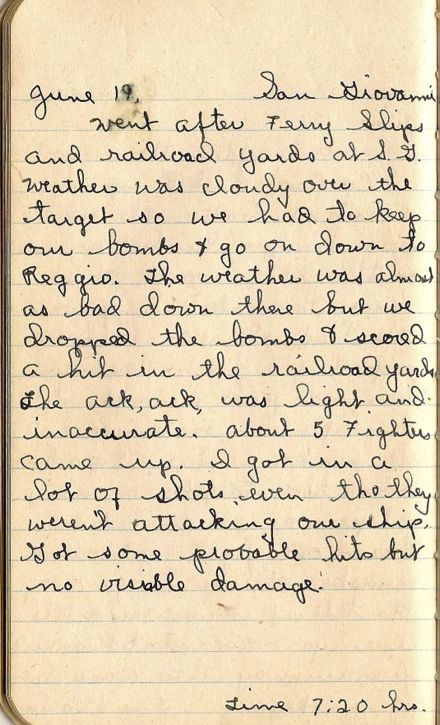 June 19, San Giovanni
Went after Ferry Slips
and railroad yards at S. G.
Weather was cloudy over the
target so we had to keep
our bombs & go on down to
Reggio. The weather was almost
as bad down there but we
dropped the bombs & scored
a hit in the railroad yards
The ack, ack, was light and
inaccurate. about 5 Fighters
came up. I got in a
lot of shots even tho they
weren't attacking our ship.
Got some probable hits but
no visible damage.
Time 7:20 hrs.